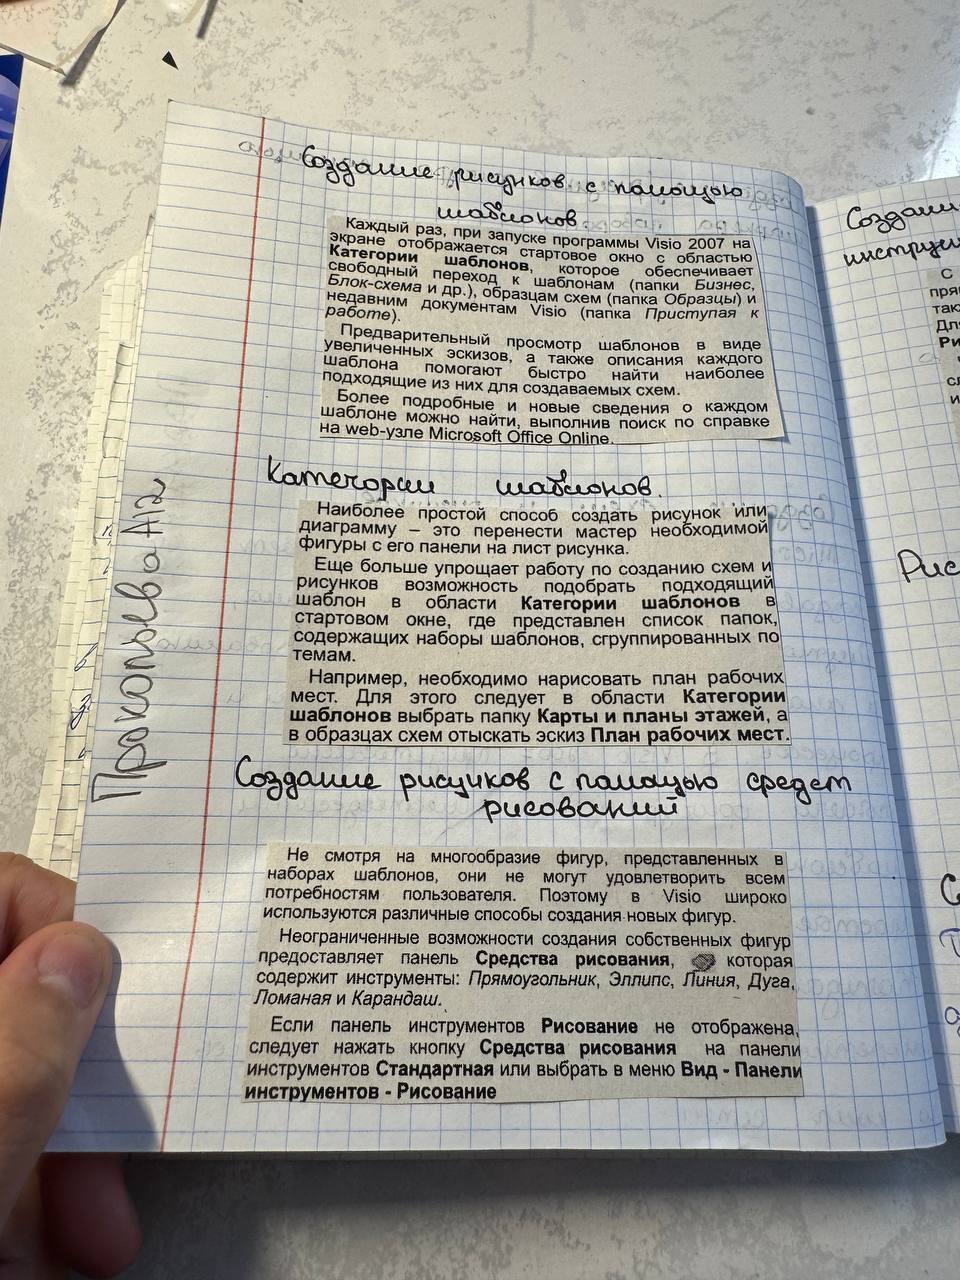 Создание рисунков с помощью
шаблонов
Каждый раз, при запуске программы Visio 2007 на
экране отображается стартовое окно с областью
Категории шаблонов, которое обеспечивает
свободный переход к шаблонам (папки Бизнес,
Блок-схема и др.), образцам схем (папка Образцы) и
недавним документам Visio (папка Приступая к
работе).
Предварительный просмотр шаблонов в виде
увеличенных эскизов, а также описания каждого
шаблона помогают быстро найти наиболее
подходящие из них для создаваемых схем.
Более подробные и новые сведения о каждом
шаблоне можно найти, выполнив поиск по справке
на web-узле Microsoft Office Online.
Категории шаблонов.
Наиболее простой способ создать рисунок или
диаграмму – это перенести мастер необходимой
фигуры с его панели на лист рисунка.
Еще больше упрощает работу по созданию схем и
рисунков возможность подобрать подходящий
шаблон в области Категории шаблонов в
стартовом окне, где представлен список папок,
содержащих наборы шаблонов, сгруппированных по
темам.
Например, необходимо нарисовать план рабочих
мест. Для этого следует в области Категории
шаблонов выбрать папку Карты и планы этажей, а
в образцах схем отыскать эскиз План рабочих мест.
Создание рисунков с помощью средст
рисований
Не смотря на многообразие фигур, представленных в
наборах шаблонов, они не могут удовлетворить всем
потребностям пользователя. Поэтому в Visio широко
используются различные способы создания новых фигур.
Неограниченные возможности создания собственных фигур
предоставляет панель Средства рисования, которая
содержит инструменты: Прямоугольник, Эллипс, Линия, Дуга,
Ломаная и Карандаш.
Если панель инструментов Рисование не отображена,
следует нажать кнопку Средства рисования на панели
инструментов Стандартная или выбрать в меню Вид - Панели
инструментов - Рисование
Прокопьева А12